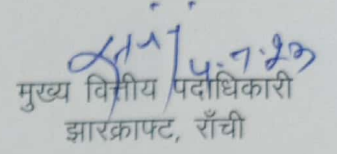 5.7.23
मुख्य वित्तीय पदाधिकारी
झारक्राफ्ट, राँची